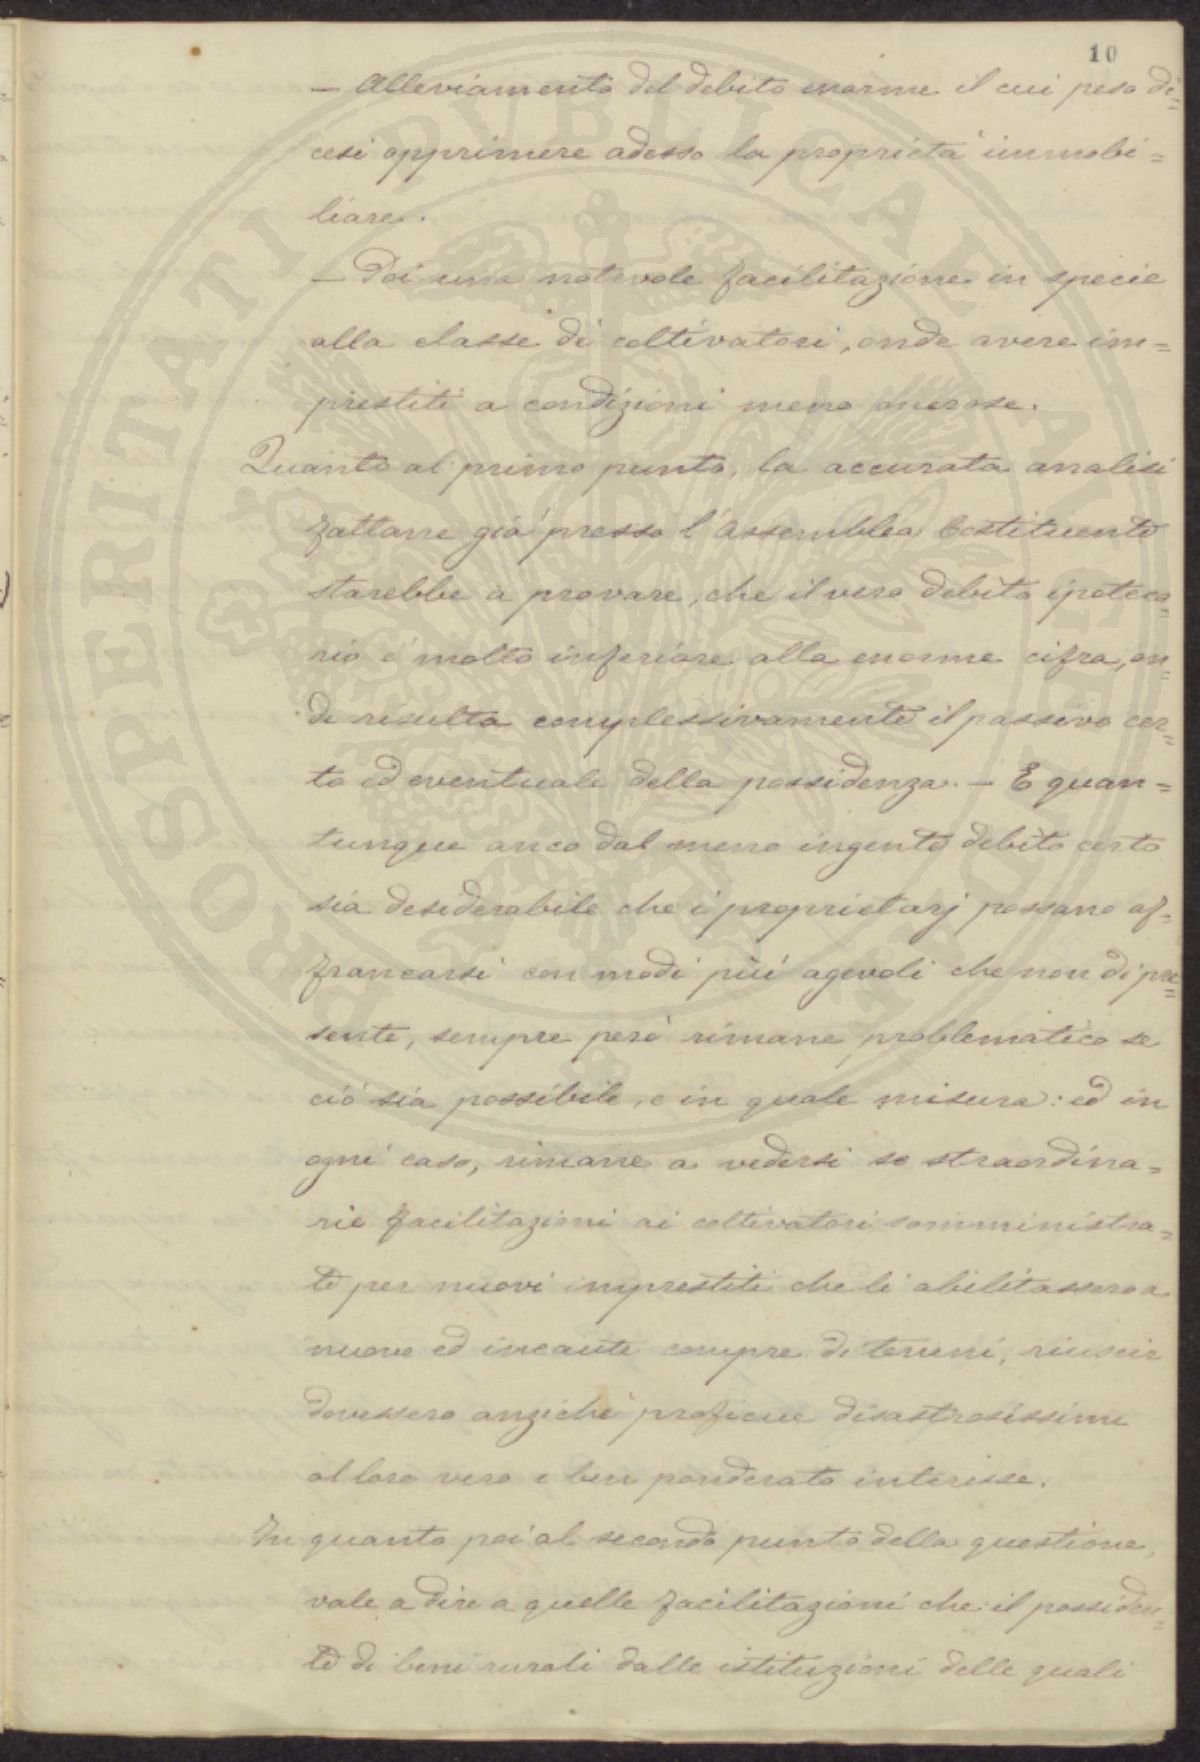 10
— Alleviamento del debito enorme il cui peso di=
cesi opprimere adesso la proprietà immobi=
liare.
— Poi una notevole facilitazione in specie
alla classe di coltivatori, onde avere im=
prestiti a condizioni meno onerose.
Quanto al primo punto, la accurata analisi
fattane già presso l'Assemblea Costituente
starebbe a provare, che il vero debito ipoteca=
rio è molto inferiore alla enorme cifra, on=
de risulta complessivamente il passivo cer=
to ed eventuale della possidenza. — E quan=
tunque anco dal meno ingente debito certo
sia desiderabile che i proprietarj possano af=
francarsi con modi più agevoli che non di pre=
sente, sempre però rimane problematico se
ciò sia possibile, e in quale misura: ed in
ogni caso, rimane a vedersi se straordina=
rie facilitazioni ai coltivatori somministra=
te per nuovi imprestiti che li abilitassero a
nuove ed incaute compre di terreni, riuscir
dovessero anzichè proficue disastrosissime
al loro vero e ben ponderato interesse.
In quanto poi al secondo punto della questione,
vale a dire a quelle facilitazioni che il possiden=
te di beni rurali dalle istituzioni delle quali
PROSPERITATI PVBLICAE AVGENDAE